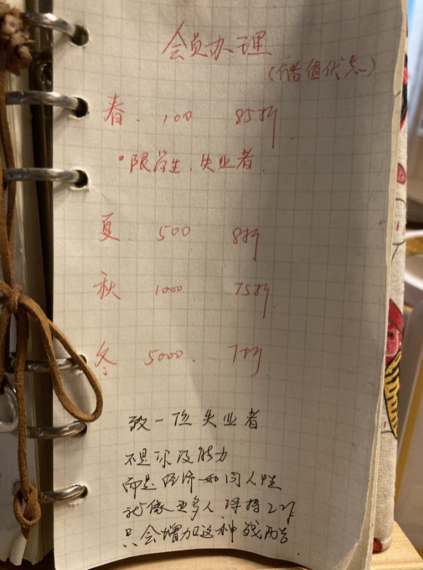 会员办理
(储值优惠)
春. 100 85折
•限学生、失业者.
夏. 500 8折
秋 1000 75折
冬 5000. 7折
致一位失业者
不是你没能力
而是经济如同人性
就像更多人保持
只会增加这种